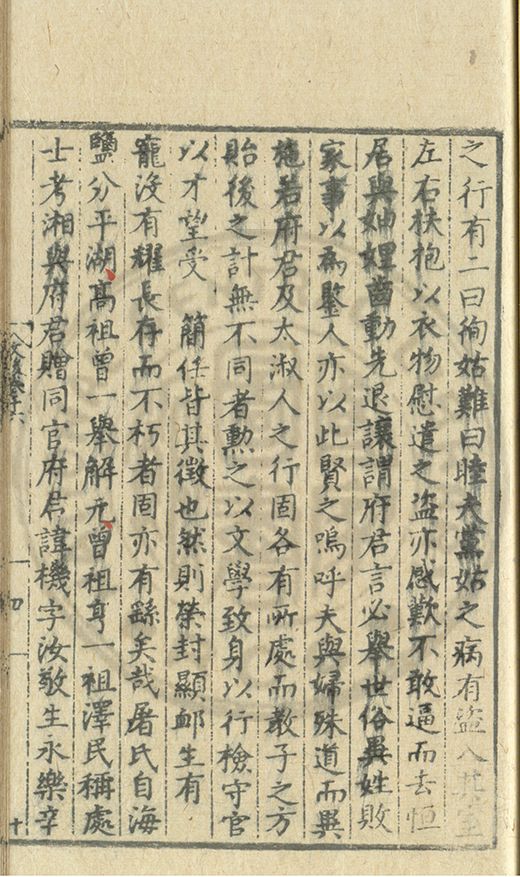 之行有二曰徇姑難曰睦夫黨姑之病有盜入其室
左右扶抱以衣物慰遣之盜亦感歎不敢逼而去恒
居與妯娌齒動先退讓謂府君言必舉世俗異姓敗
家事以為鑒人亦以此賢之嗚呼夫與婦殊道而異
施若府君及太淑人之行固各有所處而教子之方
貽後之計無不同者勲之以文學致身以行檢守官
以才望受 簡任皆其徵也然則榮封顯卹生有
寵沒有耀長存而不朽者固亦有繇矣哉屠氏自海
鹽分平湖高祖曾一舉解元曾祖亨一祖澤民稱處
士考湘與府君贈同官府君諱機字汝敬生永樂辛
十